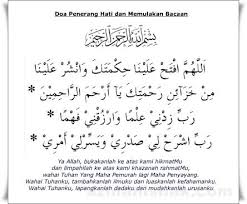 Doa Penerang Hati dan Memulakan Bacaan
بِسْمِ اللَّهِ الرَّحْمَنِ الرَّحِيمِ
اَللّٰهُمَّ افْتَحْ عَلَيْنَا حِكْمَتَكَ وَانْشُرْ عَلَيْنَا
مِنْ خَزَائِنِ رَحْمَتِكَ يَا أَرْحَمَ الرَّاحِمِيْنَ *
رَبِّ زِدْنِيْ عِلْمًا وَارْزُقْنِيْ فَهْمًا *
رَبِّ اشْرَحْ لِيْ صَدْرِيْ وَيَسِّرْ لِيْ أَمْرِيْ
Ya Allah, bukakanlah ke atas kami hikmatMu
dan limpahilah ke atas kami khazanah rahmatMu,
wahai Tuhan Yang Maha Pemurah lagi Maha Penyayang.
Wahai Tuhanku, tambahkanlah ilmuku dan luaskanlah kefahamanku.
Wahai Tuhanku, lapangkanlah dadaku dan mudahkanlah urusanku.